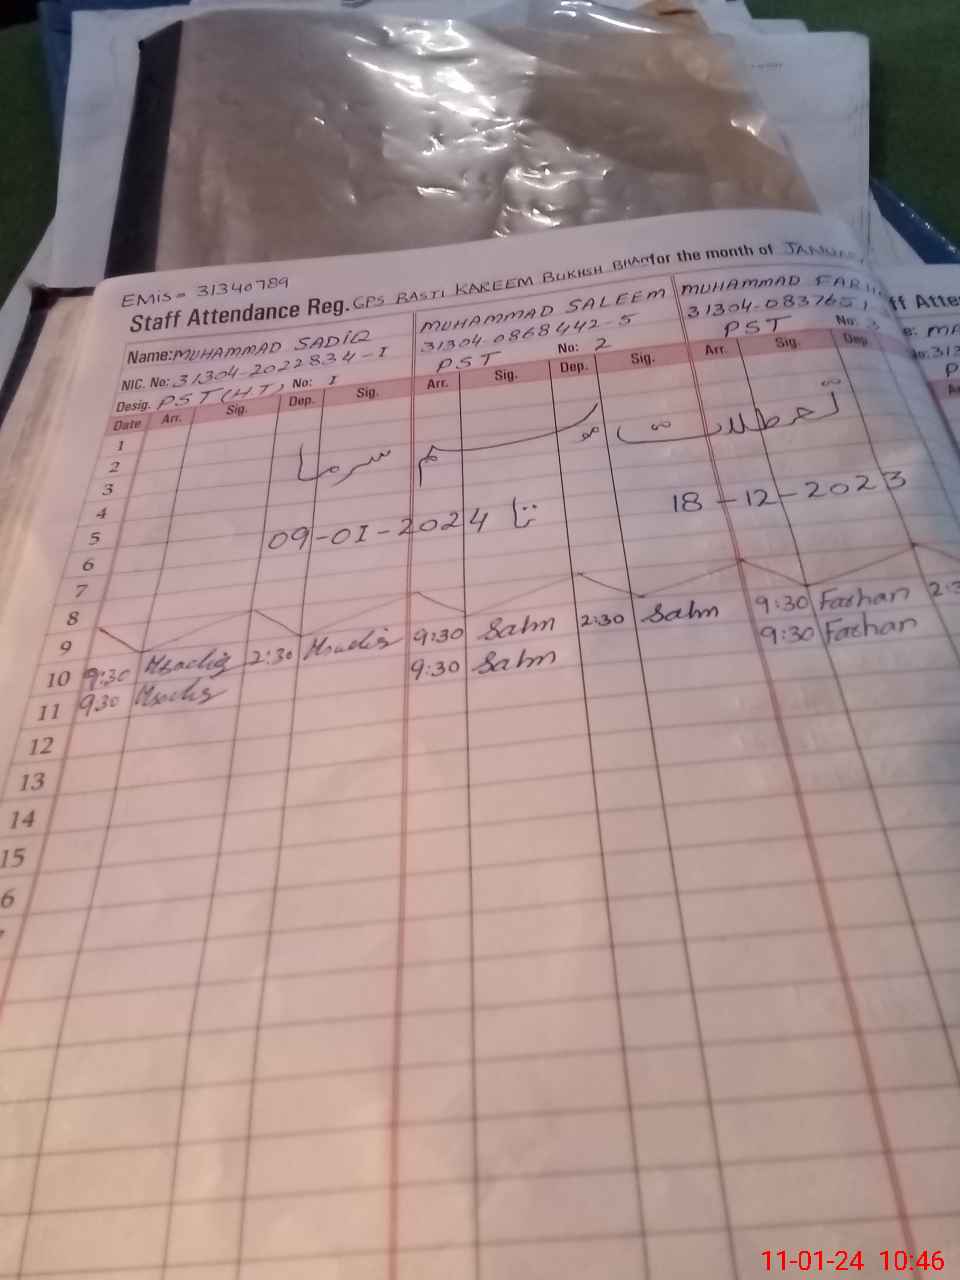 EMIS = 31340789
Staff Attendance Reg. GPS BASTI KAREEM BUKHSH for the month of
Name: MUHAMMAD SADIQ MUHAMMAD SALEEM MUHAMMAD
NIC. No: 31304-2022834-1 31304.0868442-5 31304.083765
Desig. PST (H.T) No: 1 PST No: 2 PST No: 3
Date Arr. Sig. Dep. Sig. Arr. Sig. Dep. Sig. Arr. Sig. Dep.
1
2 تعطیلات موسم سرما
3
4 18-12-2023 تا 09-01-2024
5
6
7
8
9
10 9:30 Msadiq 2:30 Msadiq 9:30 Salm 2:30 Salm 9:30 Farhan
11 9:30 Msadiq 9:30 Salm 9:30 Farhan
12
13
14
15
6
11-01-24 10:46